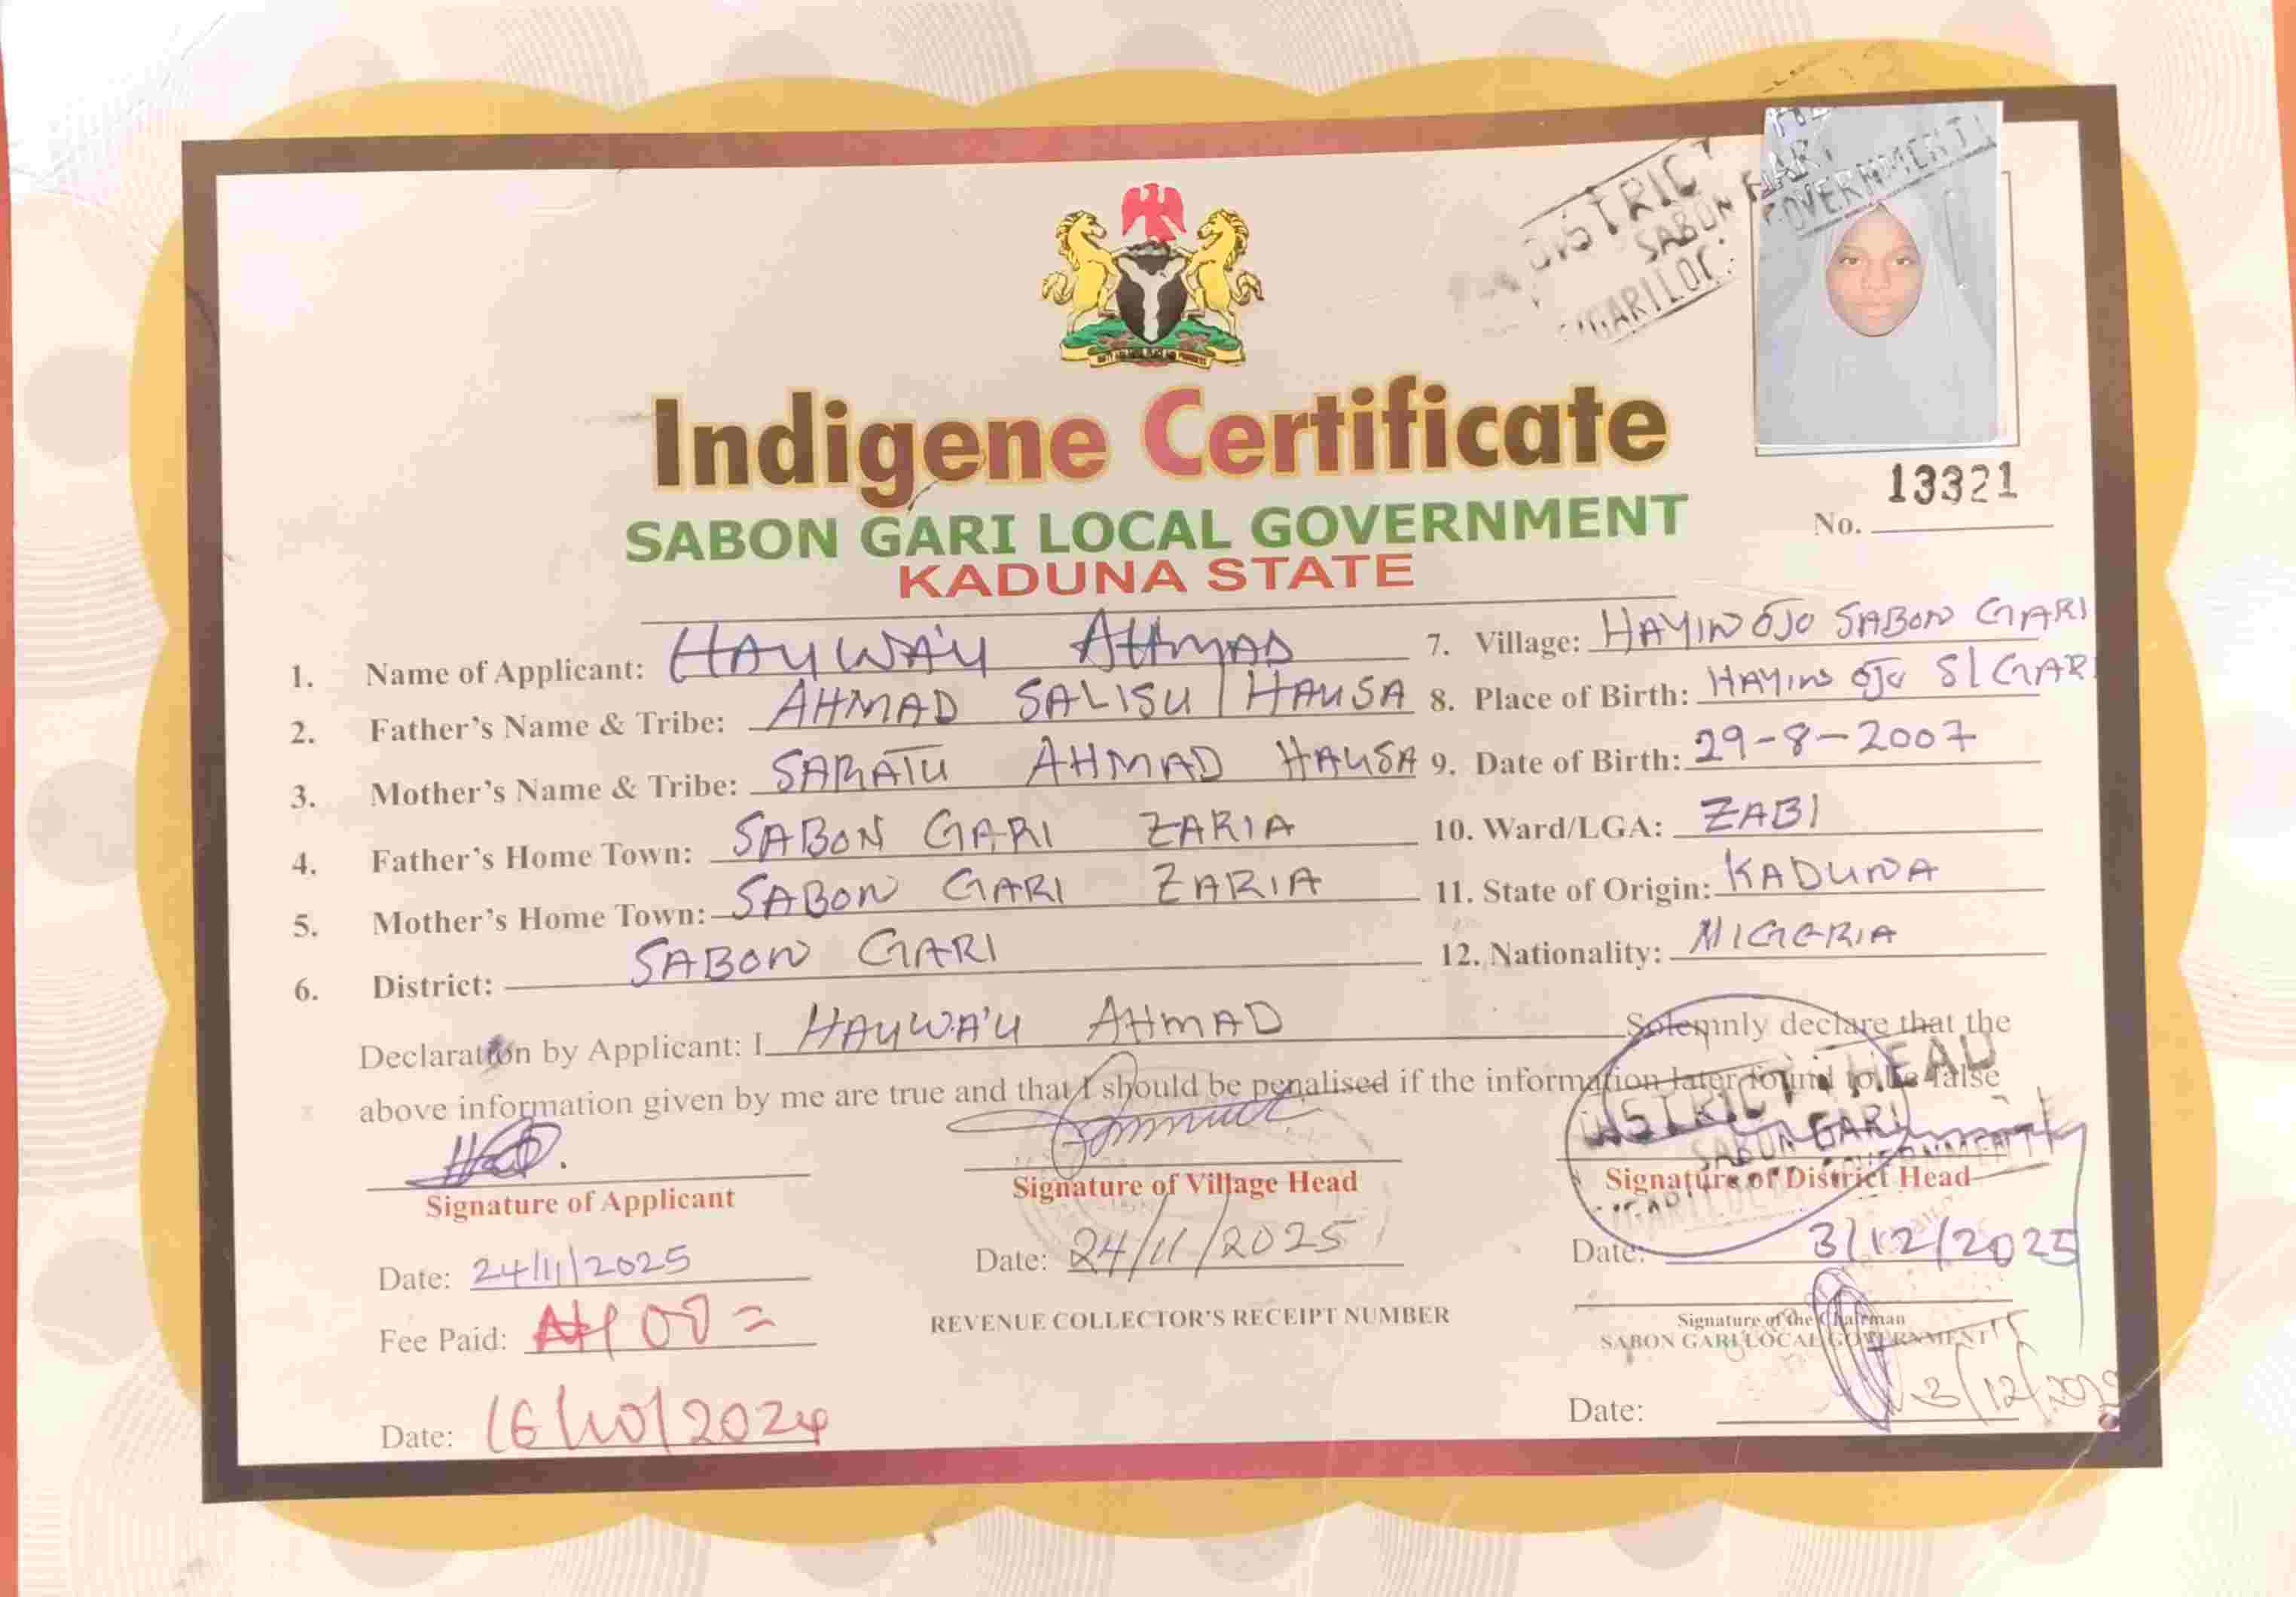 DISTRICT
SABON GARI
GOVERNMENT
Indigene Certificate
SABON GARI LOCAL GOVERNMENT
KADUNA STATE
No. 13321
1. Name of Applicant: HAUWA'U AHMAD
2. Father's Name & Tribe: AHMAD SALISU / HAUSA
3. Mother's Name & Tribe: SARATU AHMAD HAUSA
4. Father's Home Town: SABON GARI ZARIA
5. Mother's Home Town: SABON GARI ZARIA
6. District: SABON GARI
7. Village: HAYIN OJO SABON GARI
8. Place of Birth: HAYIN OJO S/GARI
9. Date of Birth: 29-8-2007
10. Ward/LGA: ZABI
11. State of Origin: KADUNA
12. Nationality: NIGERIA
Declaration by Applicant: I HAUWA'U AHMAD Solemnly declare that the
above information given by me are true and that I should be penalised if the information later found to be false
DISTRICT HEAD
SABON GARI
Signature of Applicant
Signature of Village Head
Signature of District Head
Date: 24/11/2025
Date: 24/11/2025
Date: 3/12/2025
Fee Paid:
REVENUE COLLECTOR'S RECEIPT NUMBER
Signature of the Chairman
SABON GARI LOCAL GOVERNMENT
Date: 16/10/2024
Date: 3/12/